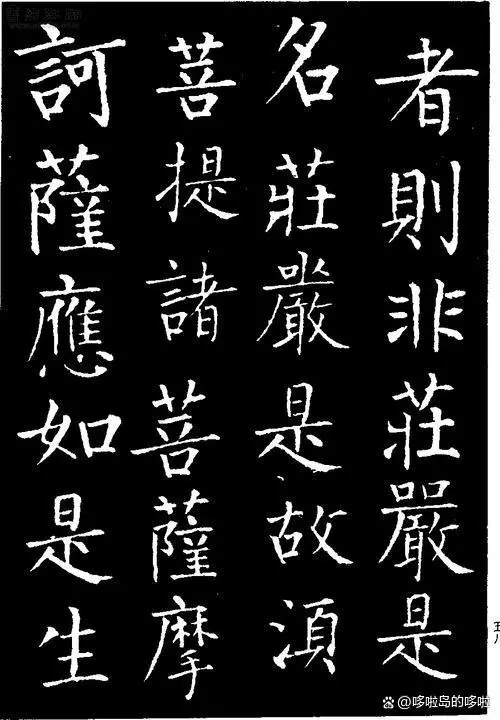 者則非莊嚴是
名莊嚴是故湏
菩提諸菩薩摩
訶薩應如是生
五八
@哆啦岛的哆啦